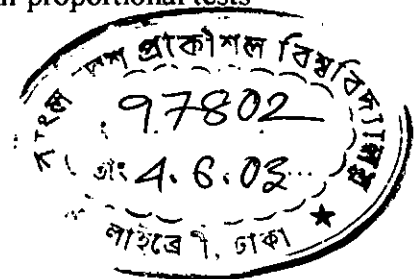 proportional tests
প্রকৌশল বিশ্ববিদ্যালয়
97802
তাং 4.6.03
লাইব্রেরী, ঢাকা